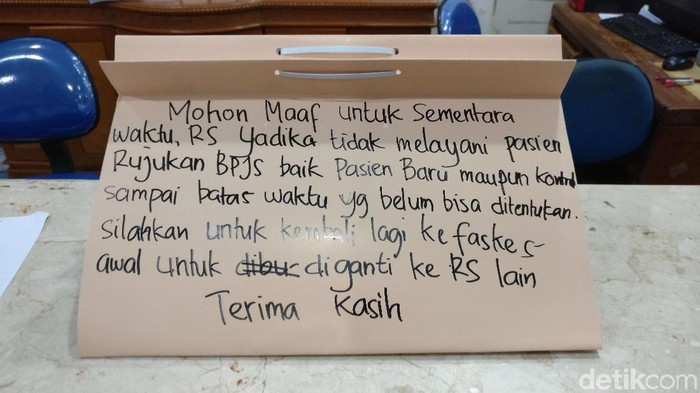 Mohon Maaf untuk Sementara
waktu, RS Yadika tidak melayani pasien
Rujukan BPJS baik Pasien Baru maupun kontrol
sampai batas waktu yg belum bisa ditentukan.
Silahkan untuk kembali lagi ke faskes
awal untuk dibur diganti ke RS lain
Terima Kasih
detikcom